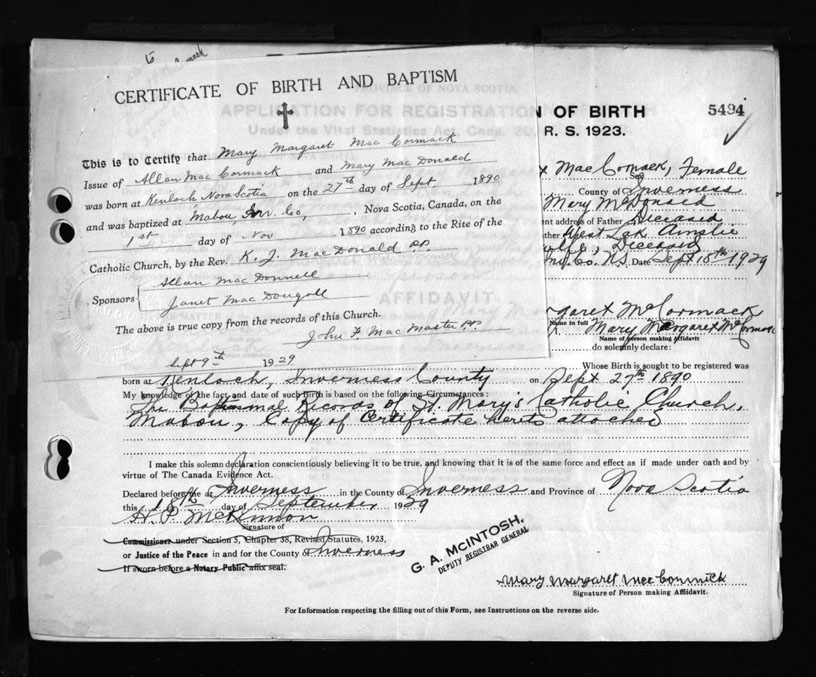 CERTIFICATE OF BIRTH AND BAPTISM
This is to Certify that Mary Margaret Mac Cormack
Issue of Allan Mac Cormack and Mary Mac Donald
was born at Kenloch Nova Scotia on the 27th day of Sept 1890
and was baptized at Mabou Inv. Co, , Nova Scotia, Canada, on the
1st day of Nov 1890 according to the Rite of the
Catholic Church, by the Rev. K. J. MacDonald PP.
Sponsors Allan Mac Donnell
Janet Mac Dougall
The above is true copy from the records of this Church.
John F. Mac Master PP
Sept 9th 1929
PROVINCE OF NOVA SCOTIA
APPLICATION FOR REGISTRATION
Under the Vital Statistics Act, Chap. 20,
N OF BIRTH
5494
R. S. 1923.
Mac Cormack, Female
County of Inverness
Mary McDonald
address of Father Deceased
West Lake Ainslie
Deceased
Co. N.S. Date Sept 18th 1929
AFFIDAVIT
Margaret McCormack
Name in full Mary Margaret McCormack
Name of person making affidavit
do solemnly declare:
Whose Birth is sought to be registered was
born at Kenloch, Inverness County on Sept 27th 1890
My knowledge of the fact and date of such birth is based on the following Circumstances:
The Baptismal Records of St. Mary's Catholic Church,
Mabou, Copy of Certificate herito attached
I make this solemn declaration conscientiously believing it to be true, and knowing that it is of the same force and effect as if made under oath and by
virtue of The Canada Evidence Act.
Declared before me at Inverness in the County of Inverness and Province of Nova Scotia
this day of September 1929
H. P. McKinnon
Signature of
Commissioner under Section 5, Chapter 38, Revised Statutes, 1923,
or Justice of the Peace in and for the County Inverness
If sworn before a Notary Public affix seal.
G. A. MCINTOSH.
DEPUTY REGISTRAR GENERAL
Mary Margaret MacCormick
Signature of Person making Affidavit.
For Information respecting the filling out of this Form, see Instructions on the reverse side.